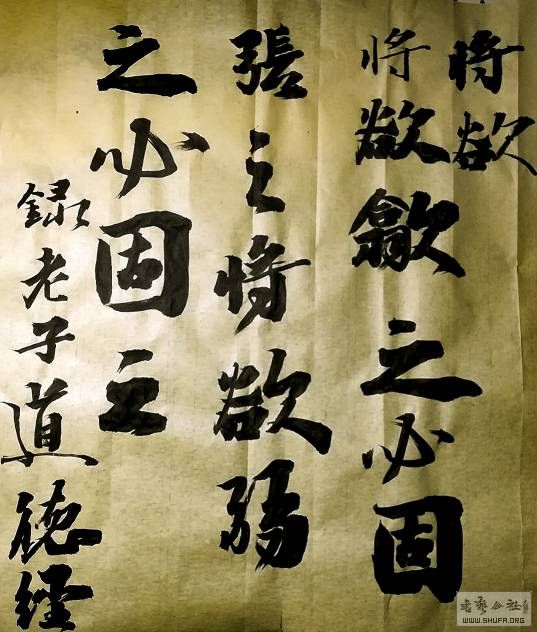 将欲
将欲歙之必固
張之将欲弱
之必固之
録老子道德經
書藝公社
WWW.SHUFA.ORG